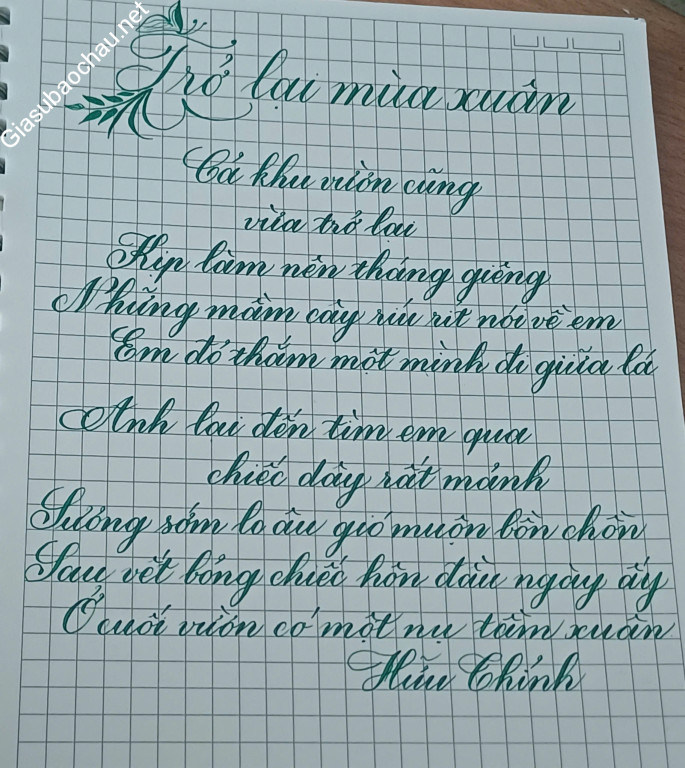 Giasubaochau.net
Trở lại mùa xuân
Cả khu vườn cũng
vừa trở lại
Kịp làm nên tháng giêng
Những mầm cây ríu rít nói về em
Em đỏ thắm một mình đi giữa lá
Anh lại đến tìm em qua
chiếc dây rất mảnh
Sương sớm lo âu gió muộn bồn chồn
Sau vết bỏng chiếc hôn đầu ngày ấy
Ở cuối vườn có một nụ tầm xuân
Hữu Chỉnh